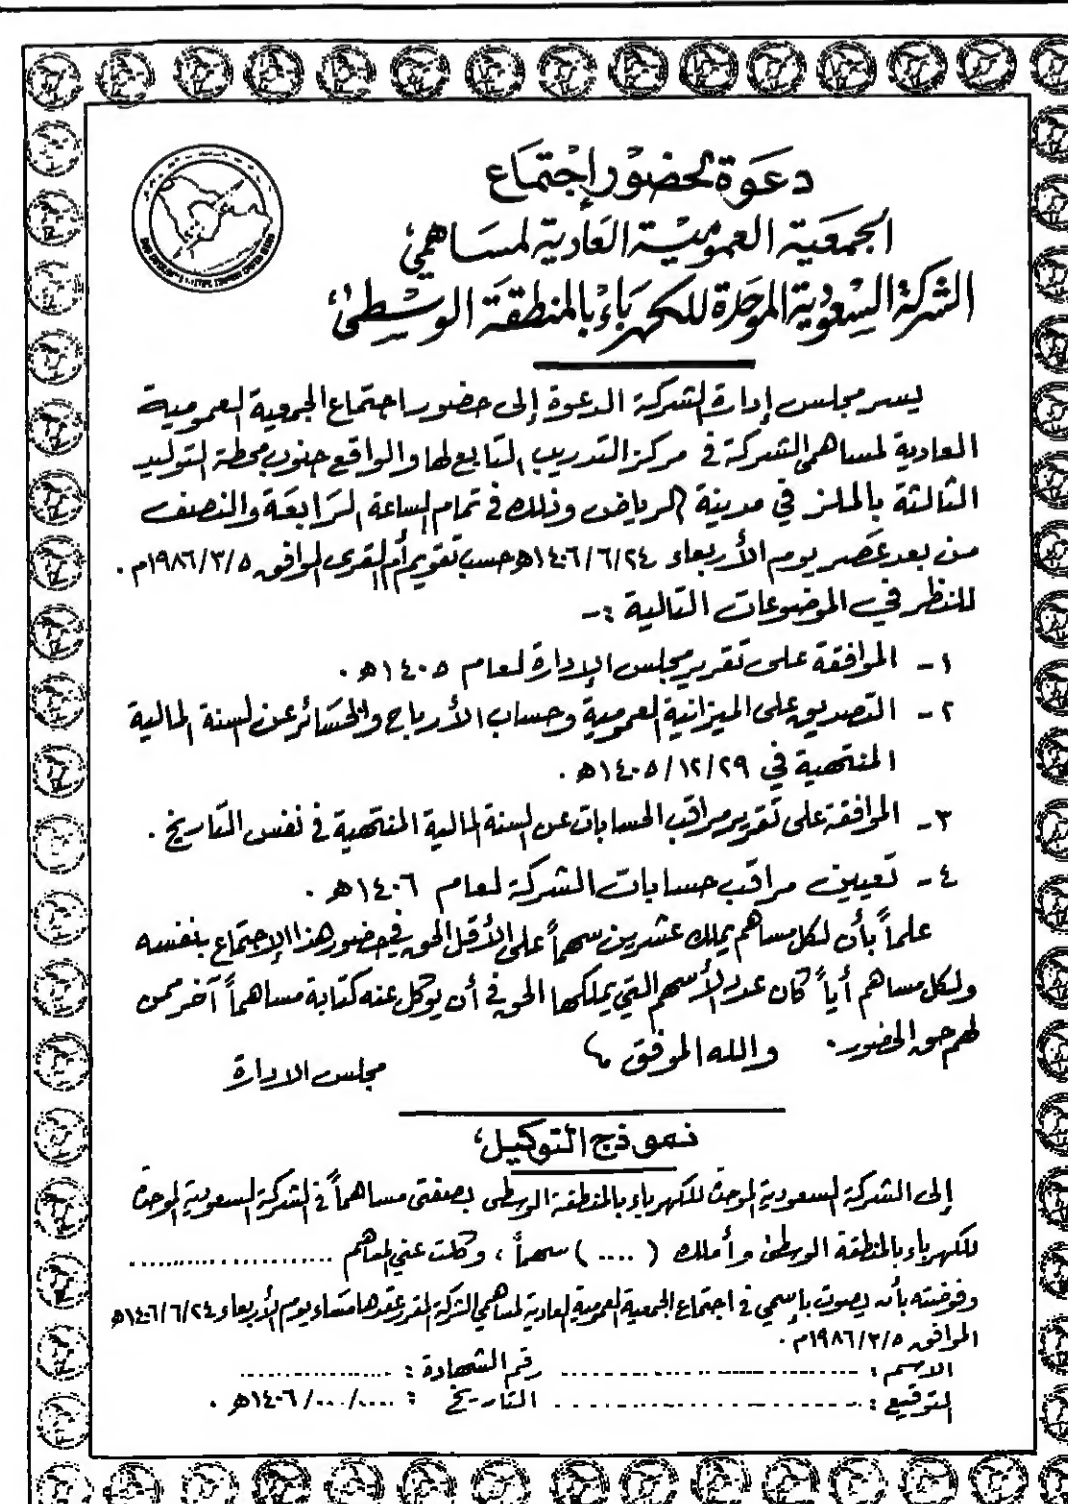 دعوة لحضور إجتماع
الجمعية العمومية العادية لمساهمي
الشركة السعودية الموحدة للكهرباء بالمنطقة الوسطى
يسر مجلس إدارة الشركة الدعوة إلى حضور اجتماع الجمعية العمومية
العادية لمساهمي الشركة في مركز التدريب التابع لها والواقع جنوب محطة التوليد
الثالثة بالملز في مدينة الرياض وذلك في تمام الساعة الرابعة والنصف
من بعد عصر يوم الأربعاء ١٤٠٦/٦/٢٤هـ حسب تقويم أم القرى الموافق ١٩٨٦/٣/٥م .
للنظر في الموضوعات التالية :-
١ - الموافقة على تقرير مجلس الإدارة لعام ١٤٠٥هـ .
٢ - التصديق على الميزانية العمومية وحساب الأرباح والخسائر عن السنة المالية
المنتهية في ١٤٠٥/١٢/٢٩هـ .
٣ - الموافقة على تقرير مراقب الحسابات عن السنة المالية المنتهية في نفس التاريخ .
٤ - تعيين مراقب حسابات الشركة لعام ١٤٠٦هـ .
علماً بأن لكل مساهم يملك عشرين سهماً على الأقل الحق في حضور هذا الإجتماع بنفسه
ولكل مساهم أياً كان عدد الأسهم التي يملكها الحق في أن يوكل عنه كتابة مساهماً آخر ممن
لهم حق الحضور . والله الموفق
مجلس الادارة
نموذج التوكيل
إلى الشركة السعودية الموحدة للكهرباء بالمنطقة الوسطى بصفتي مساهماً في الشركة السعودية الموحدة
للكهرباء بالمنطقة الوسطى وأملك ( .... ) سهماً ، وكلت عني المساهم ....................
وفوضته بأن يصوت باسمي في اجتماع الجمعية العمومية العادية لمساهمي الشركة المقرر عقدها مساء يوم الأربعاء ١٤٠٦/٦/٢٤هـ
الموافق ١٩٨٦/٣/٥م .
الاسم : .............................. رقم الشهادة : ................
التوقيع : .............................. التاريخ : ..../..../١٤٠٦هـ .